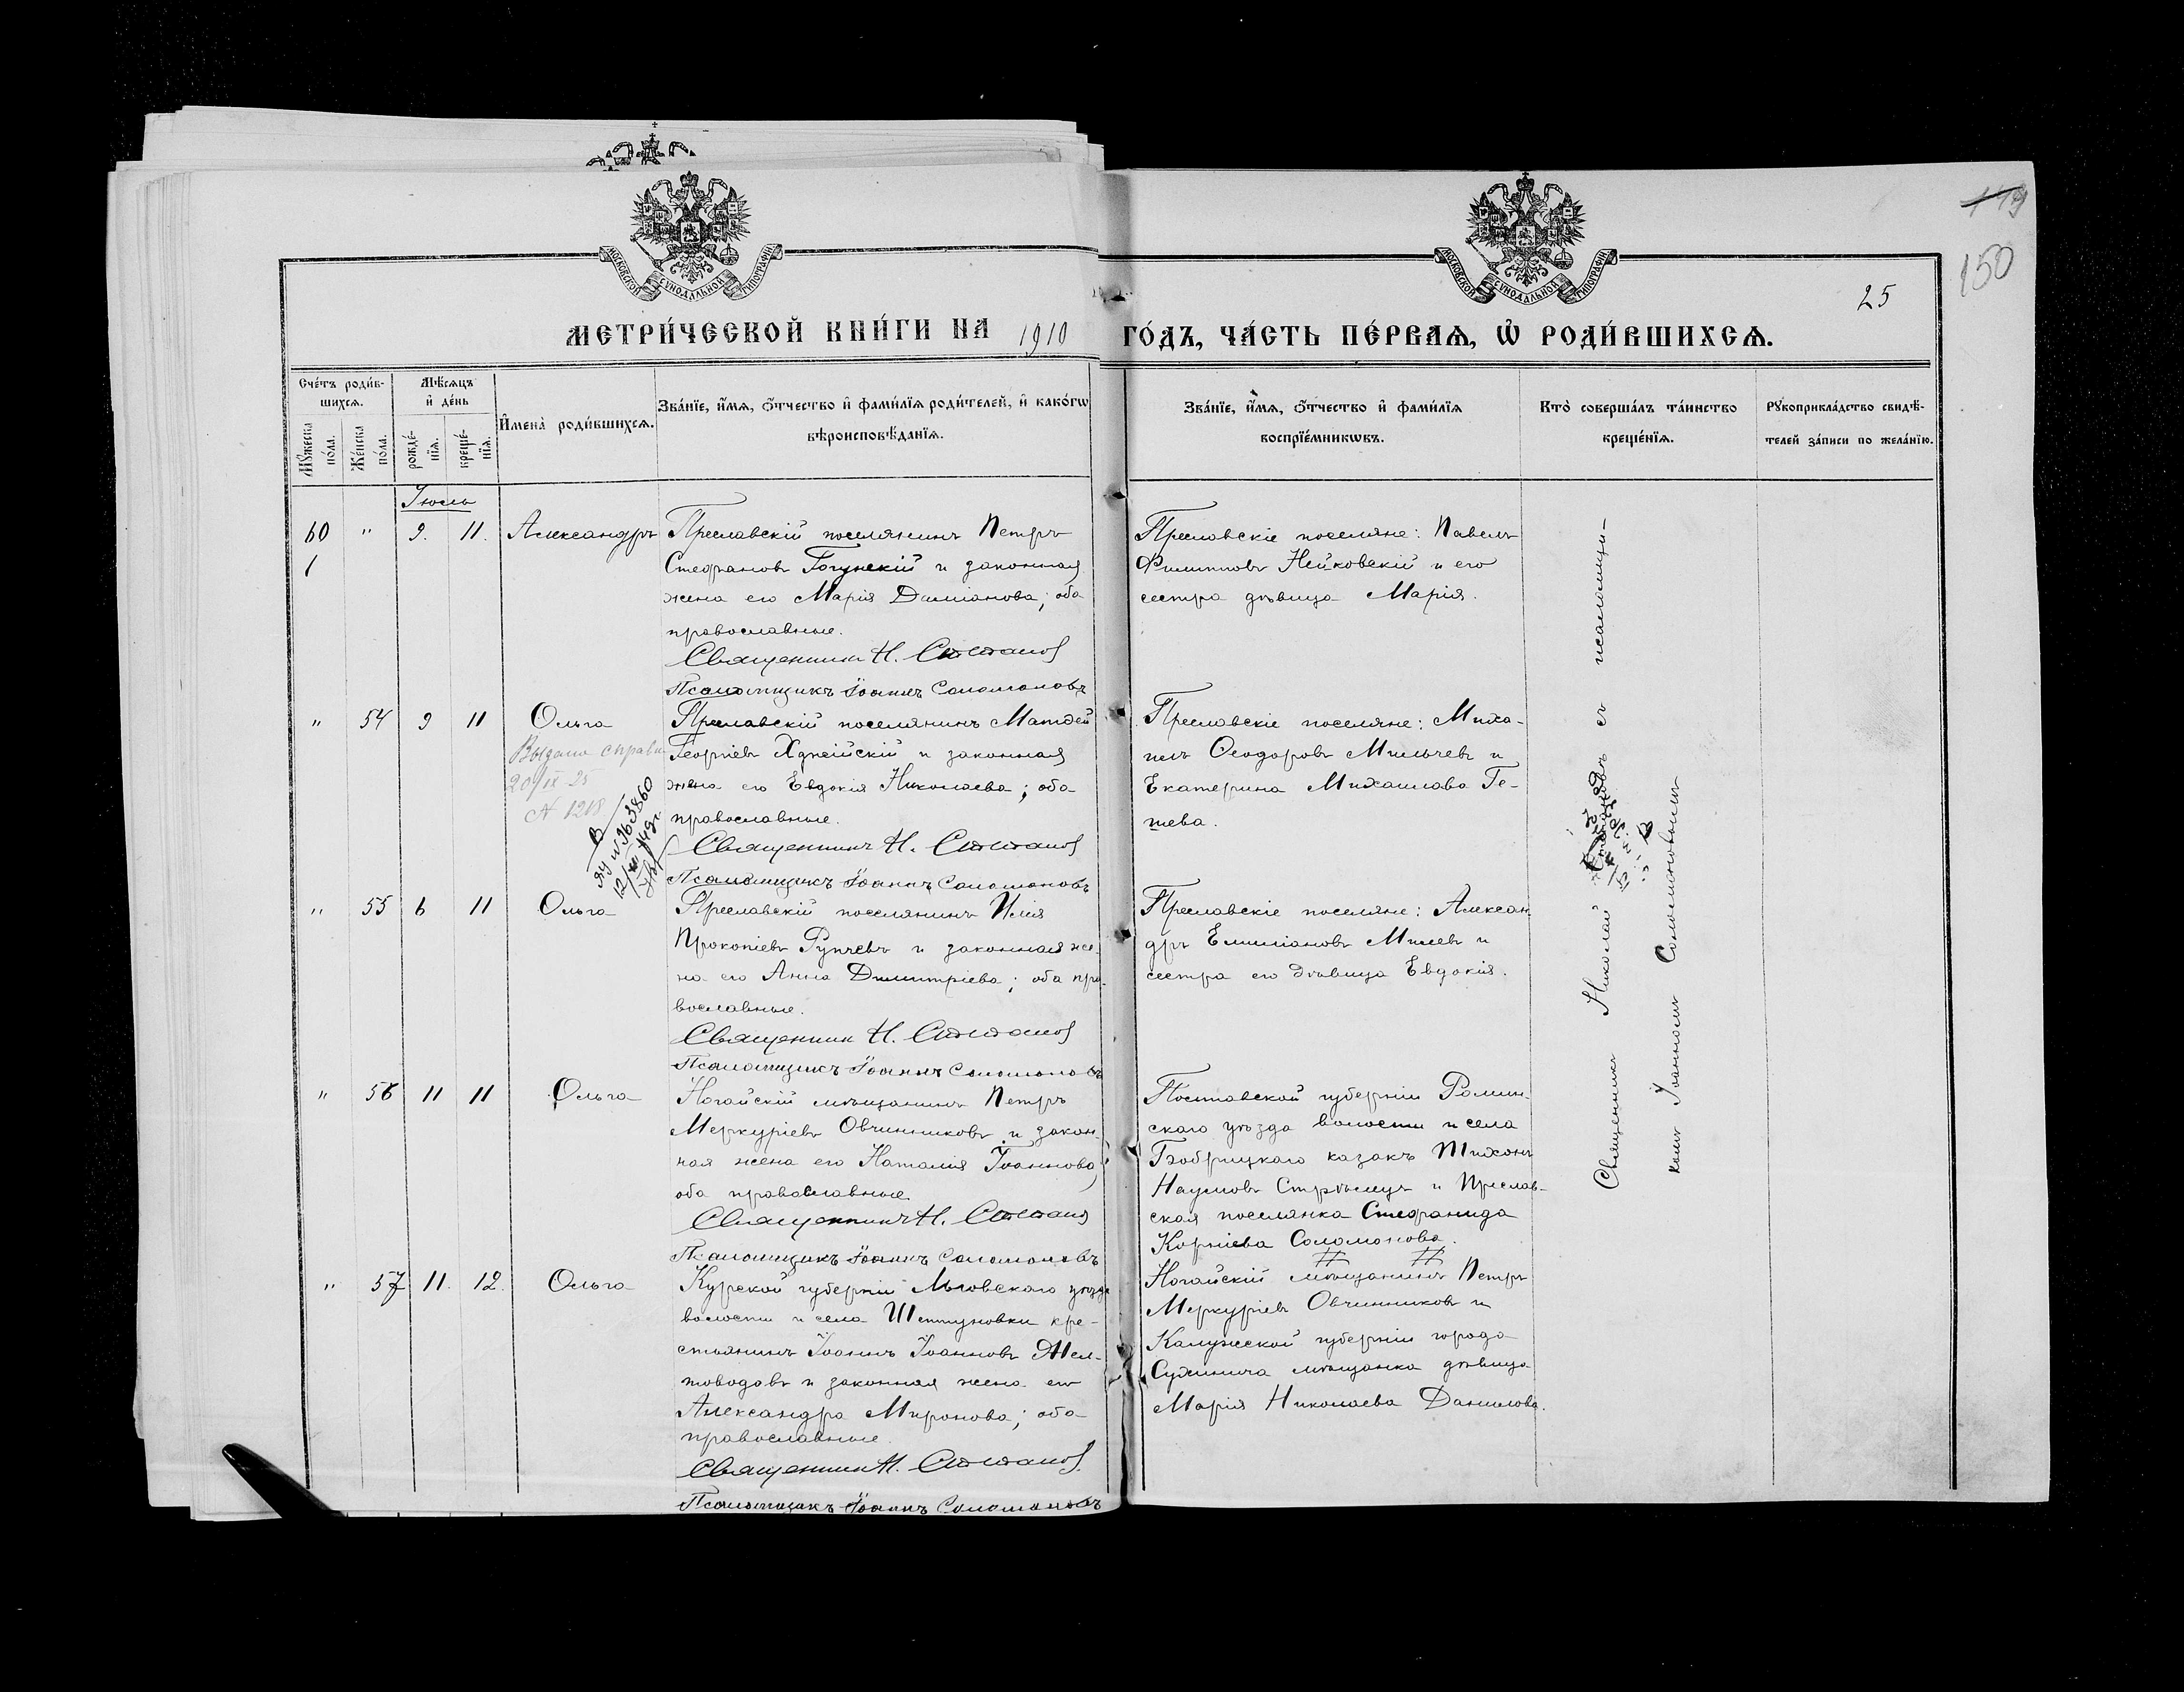 119
150
25
МОСКОВСКОЙ СѴНОДАЛЬНОЙ ТИПОГРАФІИ
МОСКОВСКОЙ СѴНОДАЛЬНОЙ ТИПОГРАФІИ
МЕТРИ́ЧЕСКОЙ КНИ́ГИ НА 1910 ГО́ДЪ, ЧА́СТЬ ПЕ́РВАѦ, Ѡ҆ РОДИ́ВШИХСѦ.
Сче́тъ роди́в-
шихсѧ.
Мꙋ́жеска по́ла.
Же́нска по́ла.
Мѣ́сѧцъ
и҆ де́нь
рожде́-
нїѧ.
креще́-
нїѧ.
И҆мена̀ роди́вшихсѧ.
Зва́нїе, и҆́мѧ, ѻ҆́тчество и҆ фами́лїѧ роди́телей, и҆ како́гѡ
вѣроисповѣ́данїѧ.
Зва́нїе, и҆́мѧ, ѻ҆́тчество и҆ фами́лїѧ
воспрїе́мникѡвъ.
Кто̀ соверша́лъ та́инство
креще́нїѧ.
Рꙋкоприкла́дство свидѣ́-
телей за́писи по жела́нїю.
Іюль
60 " 9. 11. Александръ
1
Преславскій поселянинъ Петръ
Стефановъ Гогунскій и законная
жена его Марія Даміанова; оба
православные.
Священникъ Н. Стоянов
Псаломщикъ Іоаннъ Соломоновъ
Преславскіе поселяне: Павелъ
Филипповъ Нейковскій и его
сестра дѣвица Марія.
" 54 9 11 Ольга
Выдана справка
20/IX 25
N 1218
Преславскій поселянинъ Матѳей
Георгіевъ и законная
жена его Евдокія Николаева; оба
православные.
Священникъ Н. Стоянов
Псаломщикъ Іоаннъ Соломоновъ
Преславскіе поселяне: Миха-
илъ Ѳеодоровъ Мильчевъ и
Екатерина Михаилова Ге-
шева.
" 55 6 11 Ольга
Преславскій поселянинъ Илія
Прокопіевъ Рупчевъ и законная же-
на его Анна Димитріева; оба пра-
вославные.
Священник Н. Стоянов
Псаломщикъ Іоаннъ Соломоновъ
Преславскіе поселяне: Алексан
дръ Емиліановъ Милевъ и
сестра его дѣвица Евдокія.
" 56 11 11 Ольга
Ногайскій мѣщанинъ Петръ
Меркуріевъ Овчинниковъ и закон-
ная жена его Наталія Іоаннова;
оба православные.
Священникъ Н. Стоянов
Псаломщикъ Іоаннъ Соломоновъ
Полтавской губерніи Ромен-
скаго уѣзда волости и села
казакъ Тихонъ
Наумовъ Стрѣлецъ и Преслав-
ская поселянка Стефанида
Корніева Соломонова.
" 57 11. 12. Ольга
Курской губерніи Льговскаго уѣзда
волости и села Шептуховки кре-
стьянинъ Іоаннъ Іоанновъ Жел-
товодовъ и законная жена его
Александра Миронова; оба
православные
Священникъ Н. Стоянов.
Псаломщикъ Іоаннъ Соломоновъ
Ногайскій мѣщанинъ Петръ
Меркуріевъ Овчинниковъ и
Калужской губерніи города
Сухинича мѣщанка дѣвица
Марія Николаева Данилова.
Священникъ Николай Стояновъ съ псаломщи-
комъ Іоанномъ Соломоновымъ